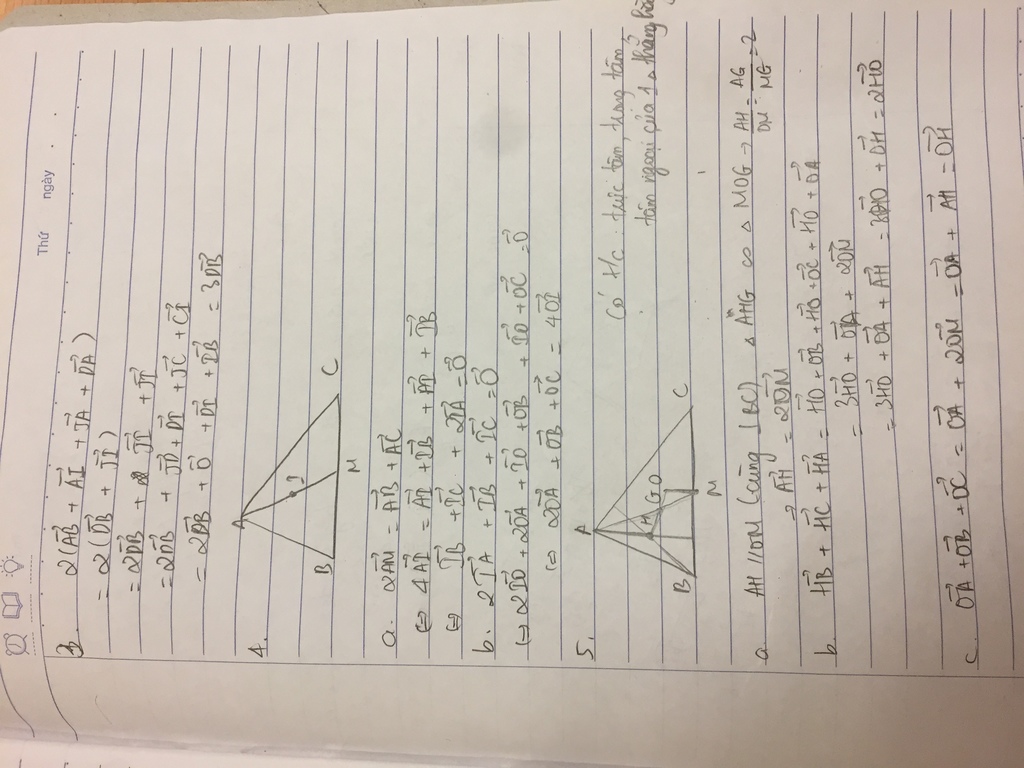 Thứ ngày . .
3. 2(AB→ + AI→ + JA→ + DA→)
= 2(DB→ + JI→)
= 2DB→ + JI→ + JI→
= 2DB→ + JD→ + DI→ + JC→ + CI→
= 2DB→ + O→ + DI→ + IB→ = 3DB→
4.
A
I
B
C
M
a. 2AM→ = AB→ + AC→
⇔ 4AI→ = AI→ + IB→ + AI→ + IB→
⇔ IB→ + IC→ + 2IA→ = O→
b. 2IA→ + IB→ + IC→ = O→
⇔ 2IO→ + 2OA→ + IO→ + OB→ + IO→ + OC→ = O→
⇔ 2OA→ + OB→ + OC→ = 4OI→
5.
A
Có t/c : trực tâm, trọng tâm,
tâm ngoại của 1 Δ thẳng
H
G O
B
C
M
a. AH // OM (cùng ⊥ BC) Δ AHG ∽ Δ MOG → AH/OM = AG/MG = 2
→ AH→ = 2OM→
b. HB→ + HC→ + HA→ = HO→ + OB→ + HO→ + OC→ + HO→ + OA→
= 3HO→ + OA→ + 2OM→
= 3HO→ + OA→ + AH→ = 3HO→ + OH→ = 2HO→
c. OA→ + OB→ + OC→ = OA→ + 2OM→ = OA→ + AH→ = OH→